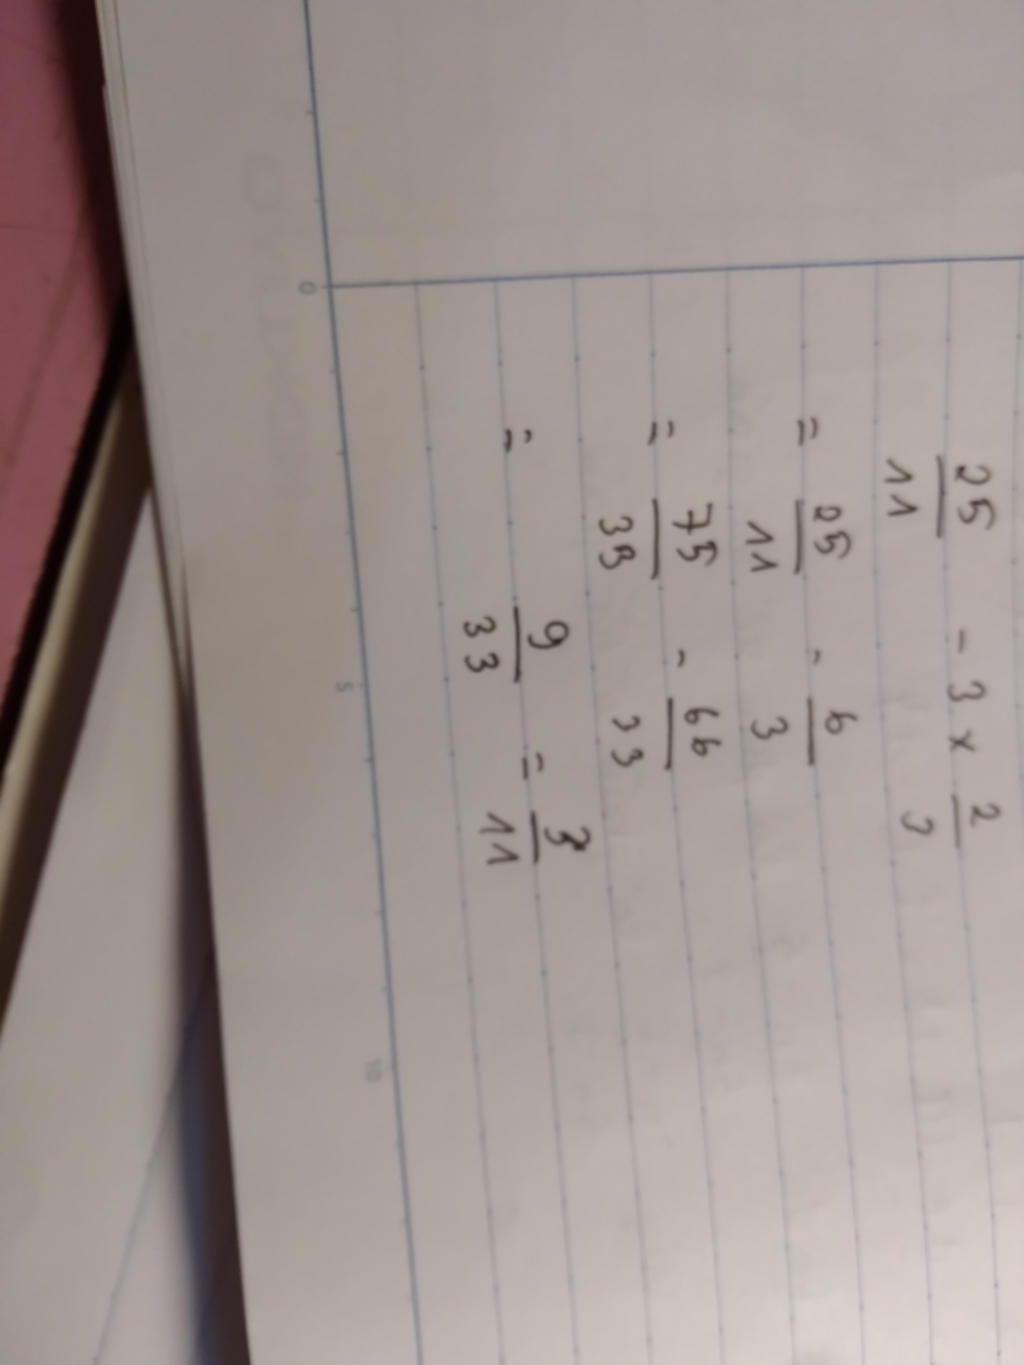 25/11 - 3 x 2/3
= 25/11 - 6/3
= 75/33 - 66/33
= 9/33 = 3/11
0 5 10